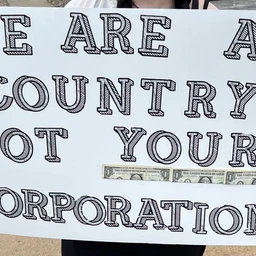 E ARE A
COUNTRY
OT YOUR
CORPORATION